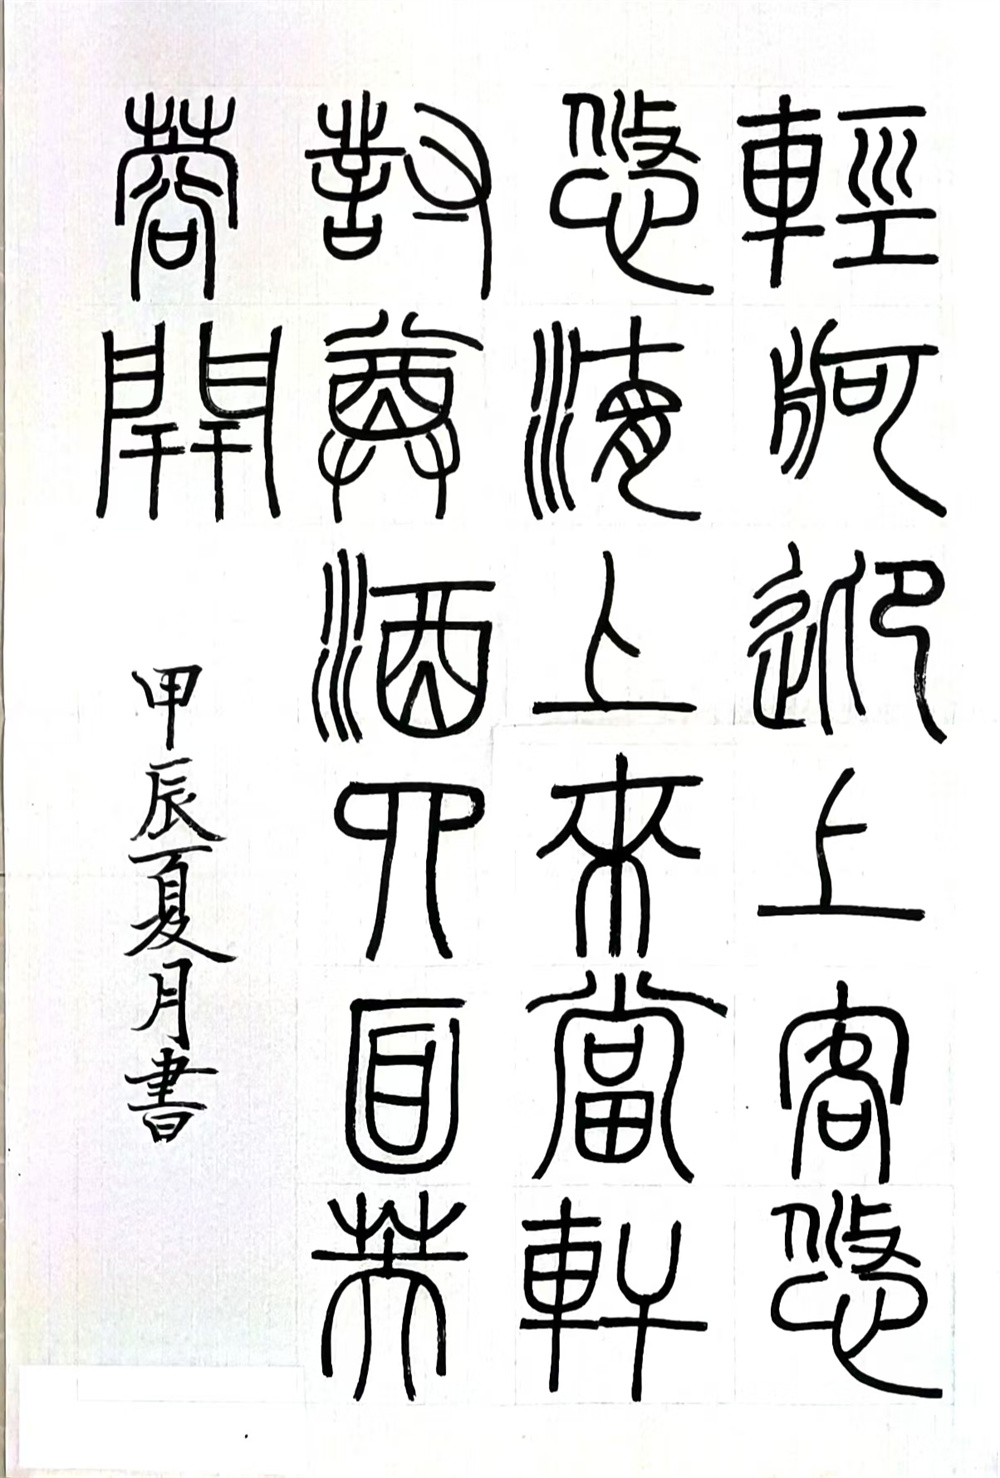 輕舸迎上客悠
悠海上來當軒
對尊酒四面芙
蓉開
甲辰夏月書